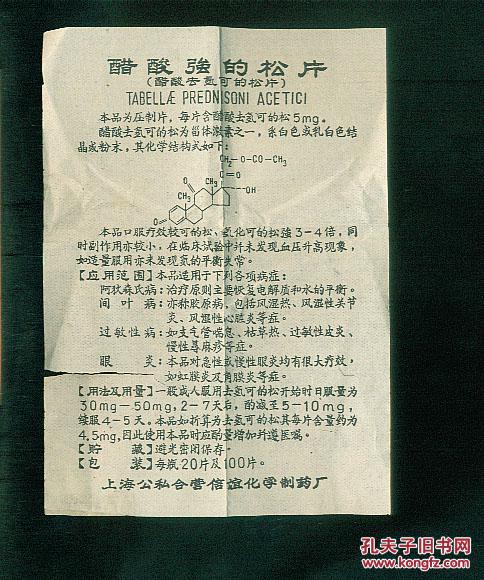 醋酸強的松片
(醋酸去氢可的松片)
TABELLÆ PREDNISONI ACETICI
本品为压制片，每片含醋酸去氢可的松5mg。
醋酸去氢可的松为甾体激素之一，系白色或乳白色结
晶或粉末，其化学结构式如下：
CH₂-O-CO-CH₃
C=O
CH₃
OH
CH₃
O
O
本品口服疗效较可的松、氢化可的松强3-4倍，同
时副作用亦较小，在临床试验中并未发现血压升高现象，
如适量服用亦未发现氮的平衡失常。
【应用范围】本品适用于下列各项病症：
阿狄森氏病：治疗原则主要恢复电解质和水的平衡。
间叶病：亦称胶原病，包括风湿热、风湿性关节
炎、风湿性心脏炎等症。
过敏性病：如支气管喘息、枯草热、过敏性皮炎、
慢性荨麻疹等症。
眼炎：本品对急性或慢性眼炎均有很大疗效，
如虹膜炎及角膜炎等症。
【用法及用量】一般成人服用去氢可的松开始时日服量为
30mg—50mg，2-7天后，酌减至5-10mg，
续服4-5天。本品如折算为去氢可的松其每片含量约为
4.5mg，因此使用本品时应酌量增加并遵医嘱。
【贮藏】避光密闭保存。
【包装】每瓶20片及100片。
上海公私合营信谊化学制药厂
孔夫子旧书网